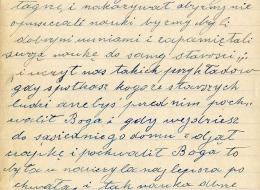 łagnę, i nakazywał abyśmy nie
opuszczali nauki byśmy byli
dobrymi uczniami i zapamiętali
swoją naukę do samej starości
i uczył nas takich przykładów
gdy spotkasz kogoś ze starszych
ludzi abyś przed nim poch-
walił Boga i gdy wejdziesz
do sąsiedniego domu zdjąć
czapkę i pochwalić Boga to
była najlepsza po
chwała, i tak nauka